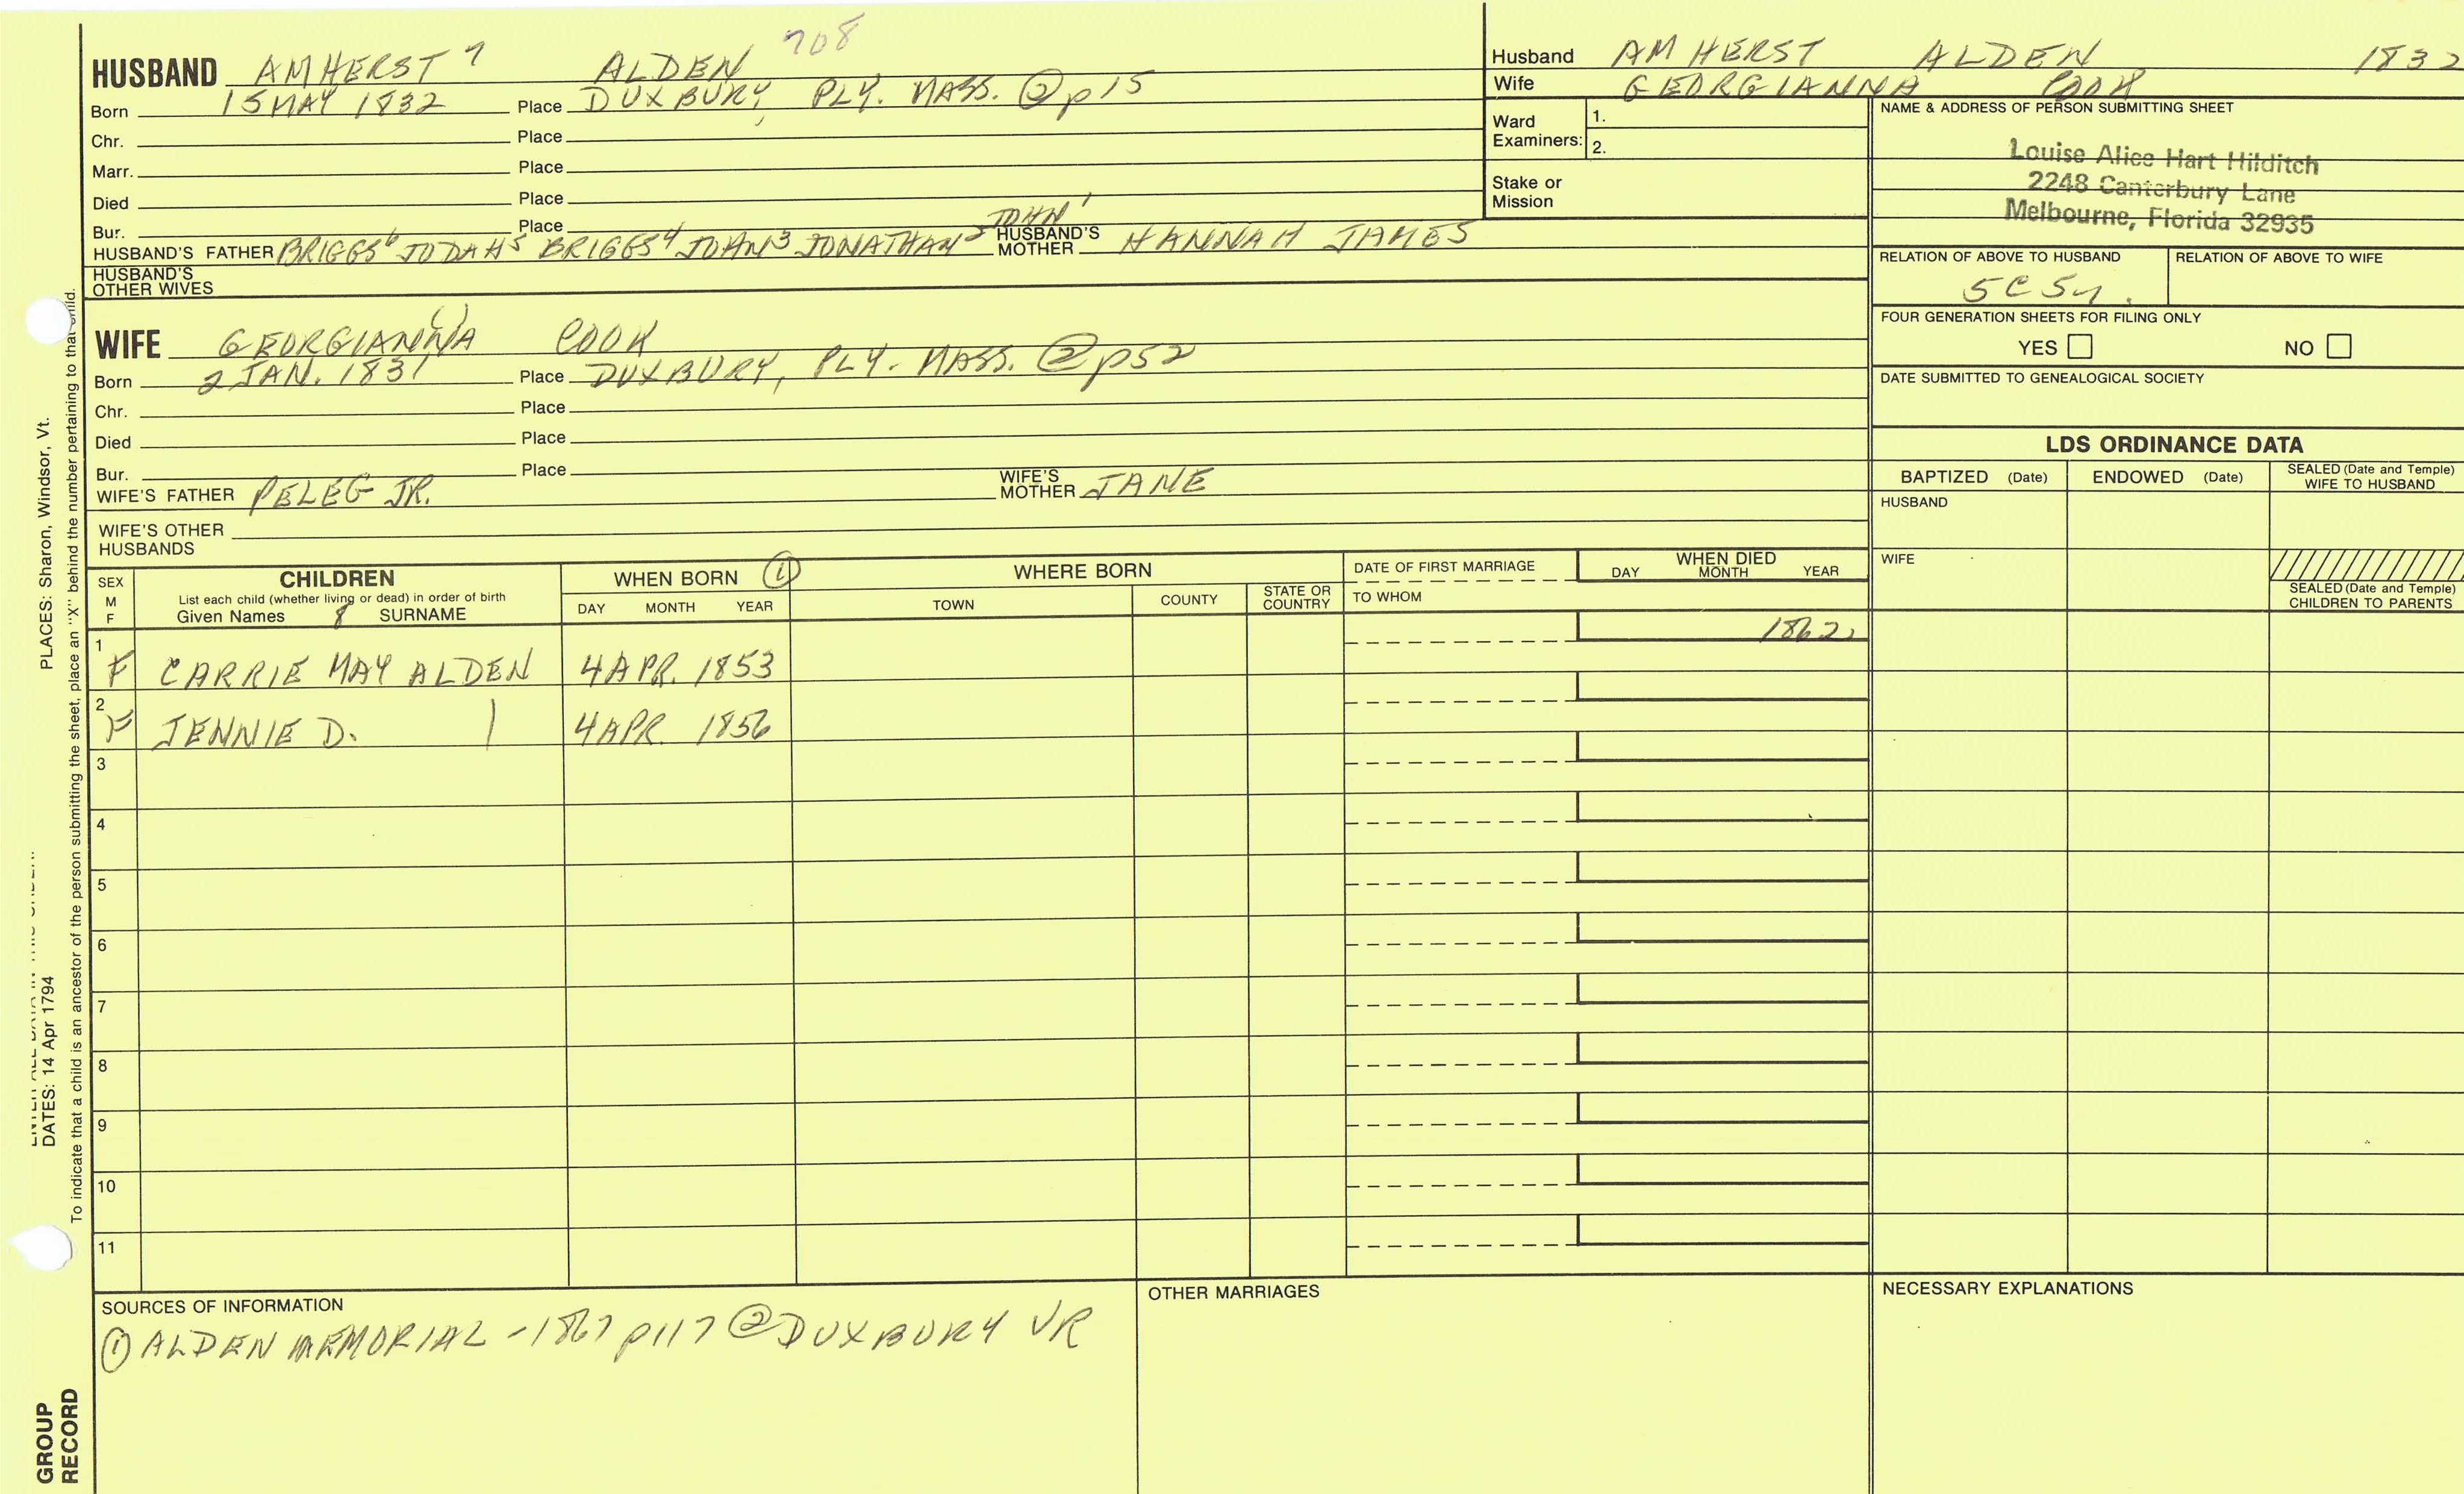 708
HUSBAND AMHERST 7 ALDEN
Born 15 MAY 1832 Place DUXBURY, PLY. MASS. ② p15
Chr. Place
Marr. Place
Died Place
Bur. Place
JOHN 1
HUSBAND'S FATHER BRIGGS 6 JUDAH 5 BRIGGS 4 JOHN 3 JONATHAN 2 HUSBAND'S MOTHER HANNAH JAMES
HUSBAND'S OTHER WIVES
Husband AMHERST ALDEN 1832
Wife GEORGIANNA COOK
Ward Examiners: 1.
2.
Stake or Mission
NAME & ADDRESS OF PERSON SUBMITTING SHEET
Louise Alice Hart Hilditch
2248 Canterbury Lane
Melbourne, Florida 32935
RELATION OF ABOVE TO HUSBAND RELATION OF ABOVE TO WIFE
5C
FOUR GENERATION SHEETS FOR FILING ONLY
YES NO
DATE SUBMITTED TO GENEALOGICAL SOCIETY
WIFE GEORGIANNA COOK
Born 2 JAN. 1831 Place DUXBURY, PLY. MASS. ② p52
Chr. Place
Died Place
Bur. Place
WIFE'S FATHER PELEG JR. WIFE'S MOTHER JANE
WIFE'S OTHER HUSBANDS
LDS ORDINANCE DATA
BAPTIZED (Date) ENDOWED (Date) SEALED (Date and Temple) WIFE TO HUSBAND
HUSBAND
WIFE
SEALED (Date and Temple) CHILDREN TO PARENTS
SEX M F
CHILDREN
List each child (whether living or dead) in order of birth
Given Names 8 SURNAME
WHEN BORN ①
DAY MONTH YEAR
WHERE BORN
TOWN COUNTY STATE OR COUNTRY
DATE OF FIRST MARRIAGE
TO WHOM
WHEN DIED
DAY MONTH YEAR
1 1862
F CARRIE MAY ALDEN 4 APR. 1853
2
F JENNIE D. 4 APR. 1856
3
4
5
6
7
8
9
10
11
SOURCES OF INFORMATION
① ALDEN MEMORIAL - 1867 p117 ② DUXBURY VR
OTHER MARRIAGES
NECESSARY EXPLANATIONS
PLACES: Sharon, Windsor, Vt.
DATES: 14 Apr 1794
To indicate that a child is an ancestor of the person submitting the sheet, place an "X" behind the number pertaining to that child.
GROUP
RECORD